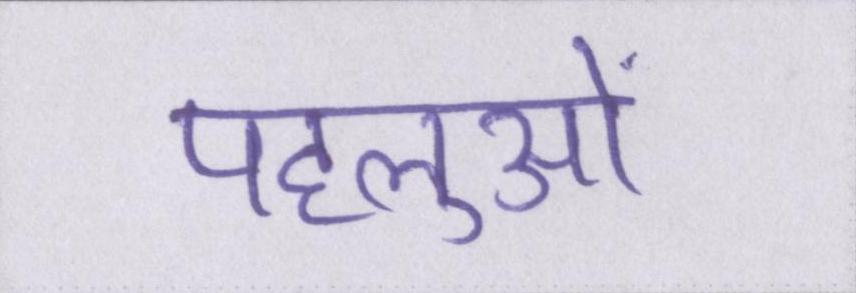 पहलुओं